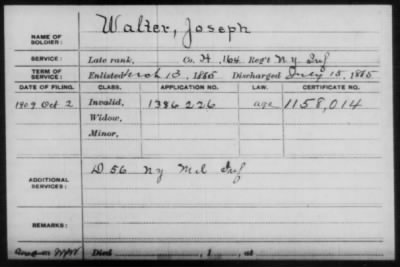 Walter, Joseph
NAME OF SOLDIER:
SERVICE: Late rank, Co. H, 164 Reg't N.Y. Inf
TERM OF SERVICE: Enlisted Mch 13, 1865 Discharged July 15, 1865
DATE OF FILING. CLASS. APPLICATION NO. LAW. CERTIFICATE NO.
1909 Oct 2 Invalid, 1386226 age 1158,014
Widow,
Minor,
ADDITIONAL SERVICES: D 56 Ny Mil Inf
REMARKS:
Died , 1 , at